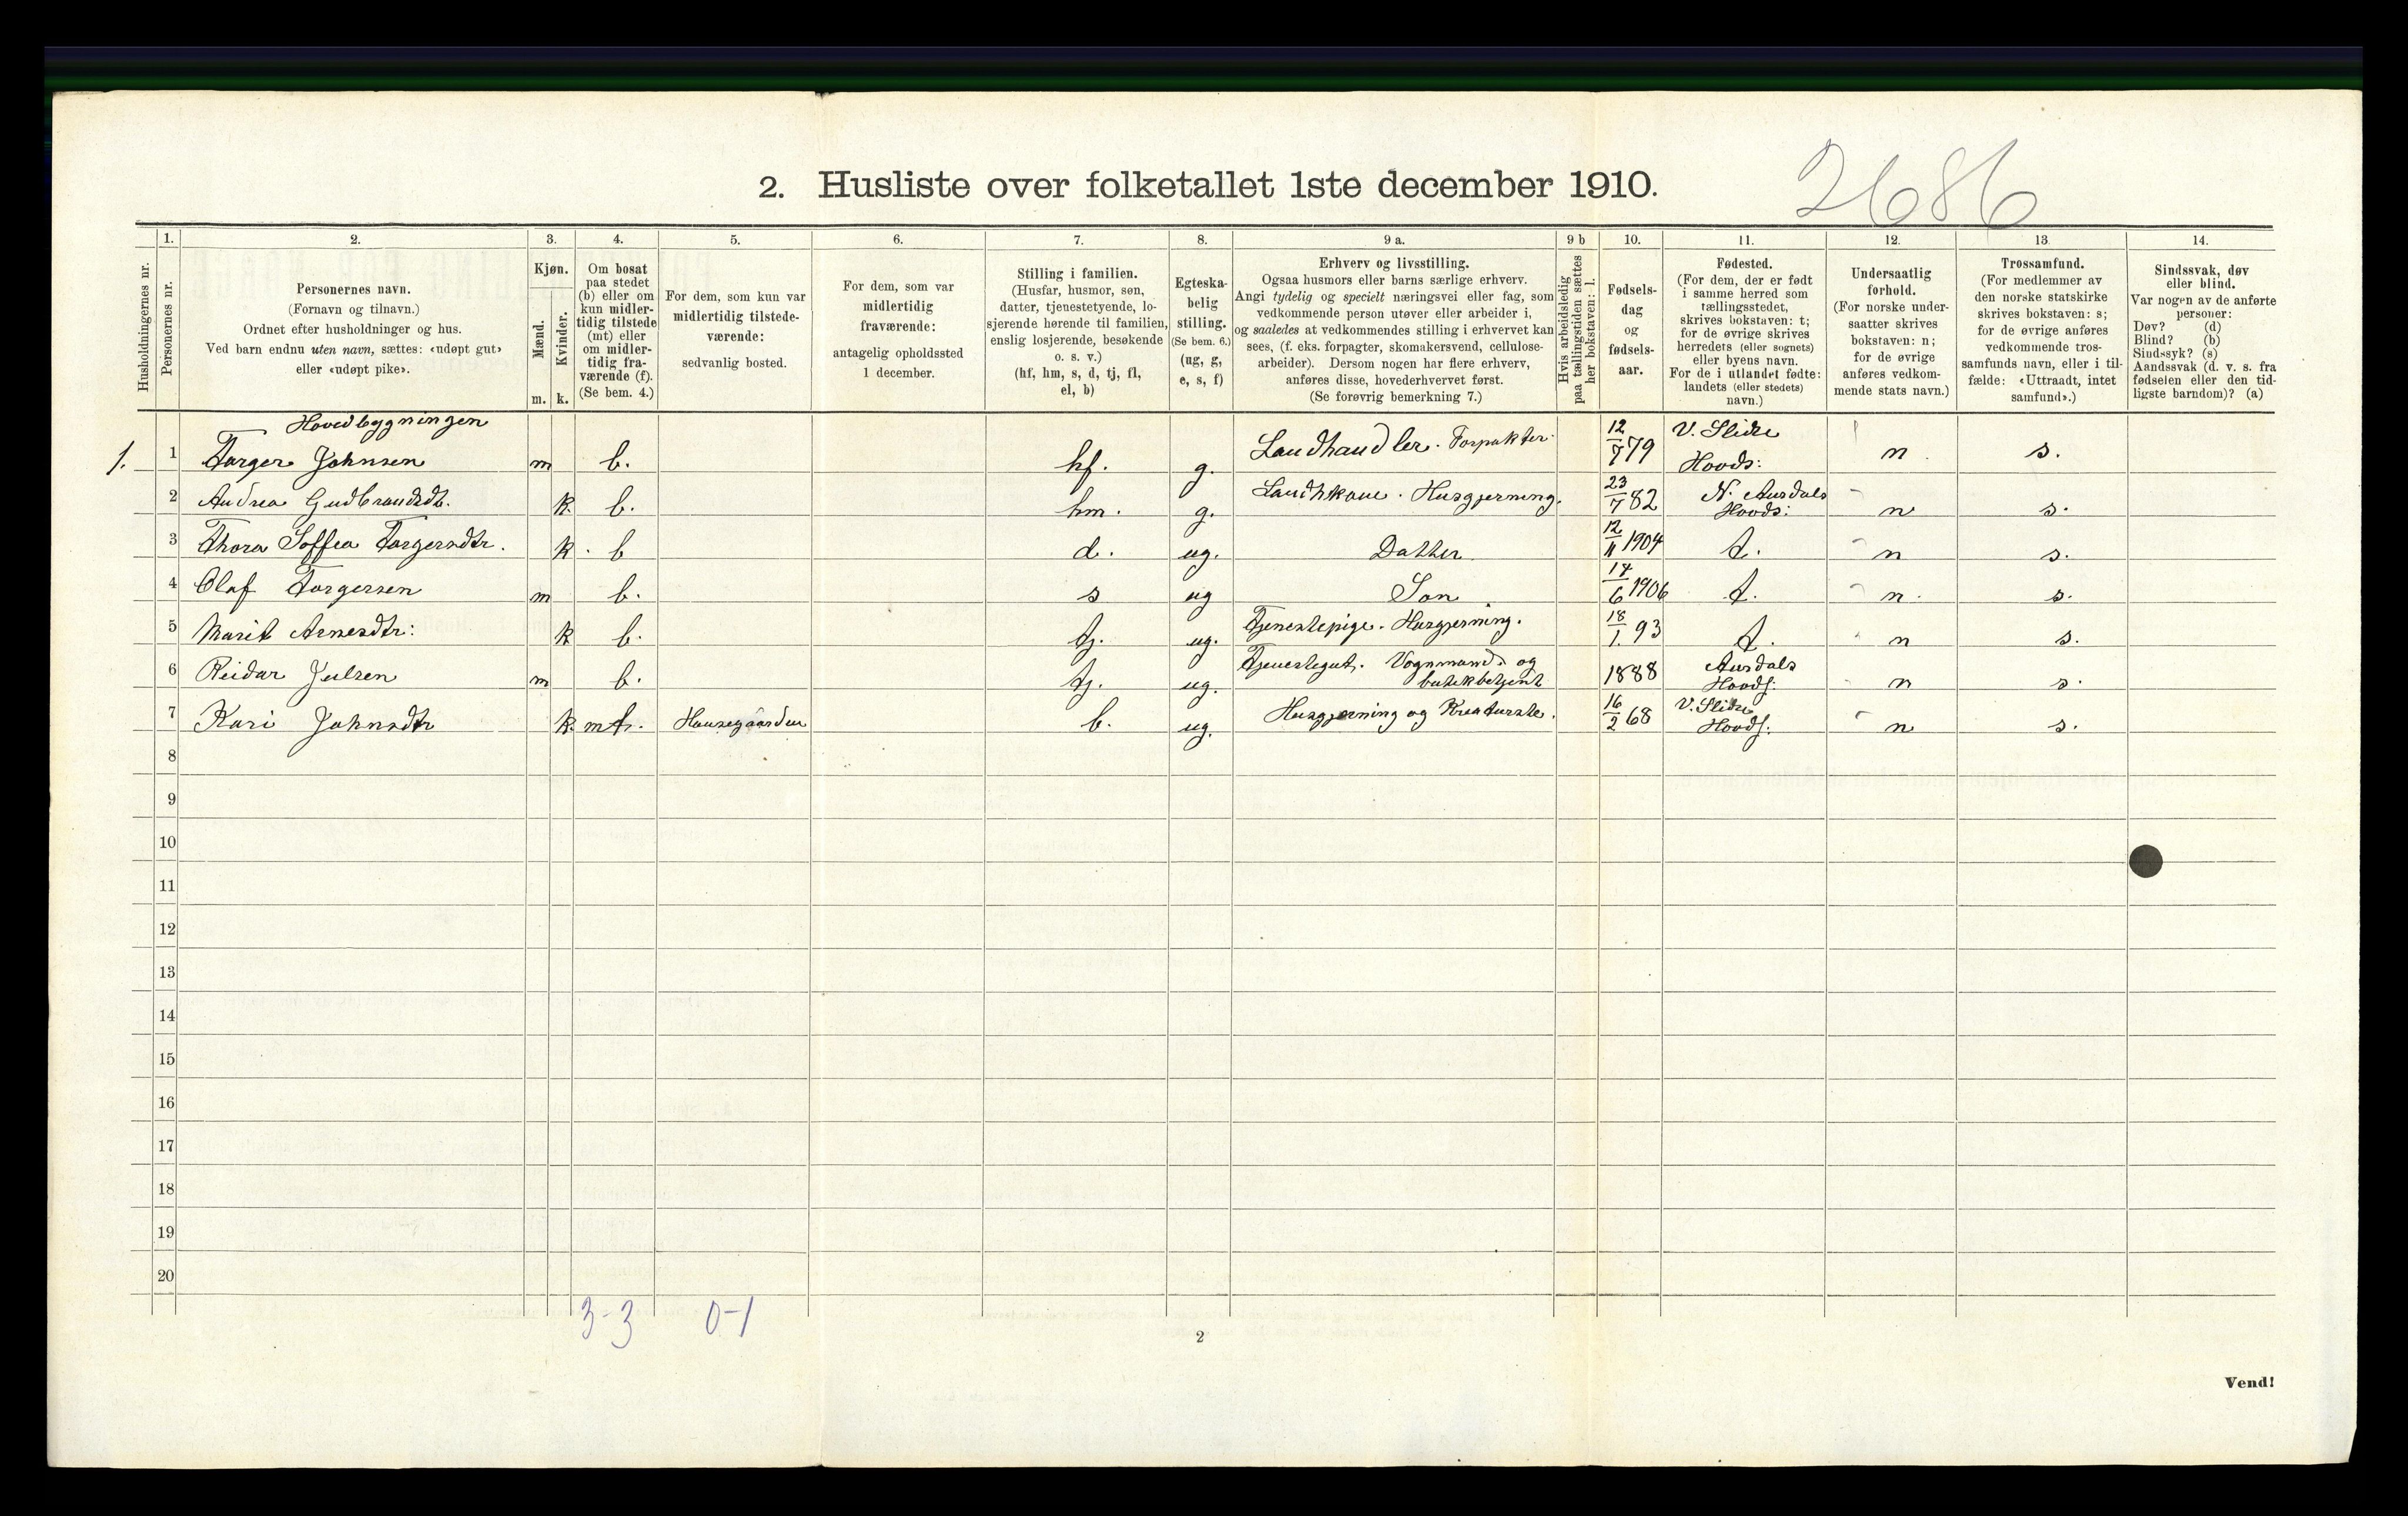 2686
2. Husliste over folketallet 1ste december 1910.
1. 2. 3. 4. 5. 6. 7. 8. 9 a. 9 b 10. 11. 12. 13. 14.
Husholdningernes nr.
Personernes nr.
Personernes navn.
(Fornavn og tilnavn.)
Ordnet efter husholdninger og hus.
Ved barn endnu uten navn, sættes: «udøpt gut»
eller «udøpt pike».
Kjøn.
Mænd.
Kvinder.
m. k.
Om bosat
paa stedet
(b) eller om
kun midler-
tidig tilstede
(mt) eller
om midler-
tidig fra-
værende (f).
(Se bem. 4.)
For dem, som kun var
midlertidig tilstede-
værende:
sedvanlig bosted.
For dem, som var
midlertidig
fraværende:
antagelig opholdssted
1 december.
Stilling i familien.
(Husfar, husmor, søn,
datter, tjenestetyende, lo-
sjerende hørende til familien,
enslig losjerende, besøkende
o. s. v.)
(hf, hm, s, d, tj, fl,
el, b)
Egteska-
belig
stilling.
(Se bem. 6.)
(ug, g,
e, s, f)
Erhverv og livsstilling.
Ogsaa husmors eller barns særlige erhverv.
Angi tydelig og specielt næringsvei eller fag, som
vedkommende person utøver eller arbeider i,
og saaledes at vedkommendes stilling i erhvervet kan
sees, (f. eks. forpagter, skomakersvend, cellulose-
arbeider). Dersom nogen har flere erhverv,
anføres disse, hovederhvervet først.
(Se forøvrig bemerkning 7.)
Hvis arbeidsledig
paa tællingstiden sættes
her bokstaven: l.
Fødsels-
dag
og
fødsels-
aar.
Fødested.
(For dem, der er født
i samme herred som
tællingsstedet,
skrives bokstaven: t;
for de øvrige skrives
herredets (eller sognets)
eller byens navn.
For de i utlandet fødte:
landets (eller stedets)
navn.)
Undersaatlig
forhold.
(For norske under-
saatter skrives
bokstaven: n;
for de øvrige
anføres vedkom-
mende stats navn.)
Trossamfund.
(For medlemmer av
den norske statskirke
skrives bokstaven: s;
for de øvrige anføres
vedkommende tros-
samfunds navn, eller i til-
fælde: «Uttraadt, intet
samfund».)
Sindssvak, døv
eller blind.
Var nogen av de anførte
personer:
Døv? (d)
Blind? (b)
Sindssyk? (s)
Aandssvak (d. v. s. fra
fødselen eller den tid-
ligste barndom)? (a)
Hovedbygningen
1. 1 Torger Johnsen m b. hf. g. Landhandler. Forpakter. 12/7 79 V. Slidre Hoods: n s.
2 Andrea Gudbrandsdt. k. b. hm. g. Husgjerning. 23/7 82 N. Aurdals Hoods: n s.
3 Thora Soffea Torgersdtr. k. b d. ug. Datter 12/11 1904 t. n s.
4 Olaf Torgersen m b. s ug Søn 14/6 1906 t. n. s.
5 Marit Arnesdtr: k b. tj. ug. Tjenestepige. Husgjerning. 18/1. 93 t. n s.
6 Reidar Julsen m b. tj. ug. Tjenestegut. Vognmand og butikbetjent 1888 Aurdals Hoods: n s.
7 Kari Johnsdtr k. mt. Hausegaarden b. ug. Husgjerning og Kreaturste. 16/2 68 V. Slidre Hoods: n s.
8
9
10
11
12
13
14
15
16
17
18
19
20
3-3 0-1
2
Vend!